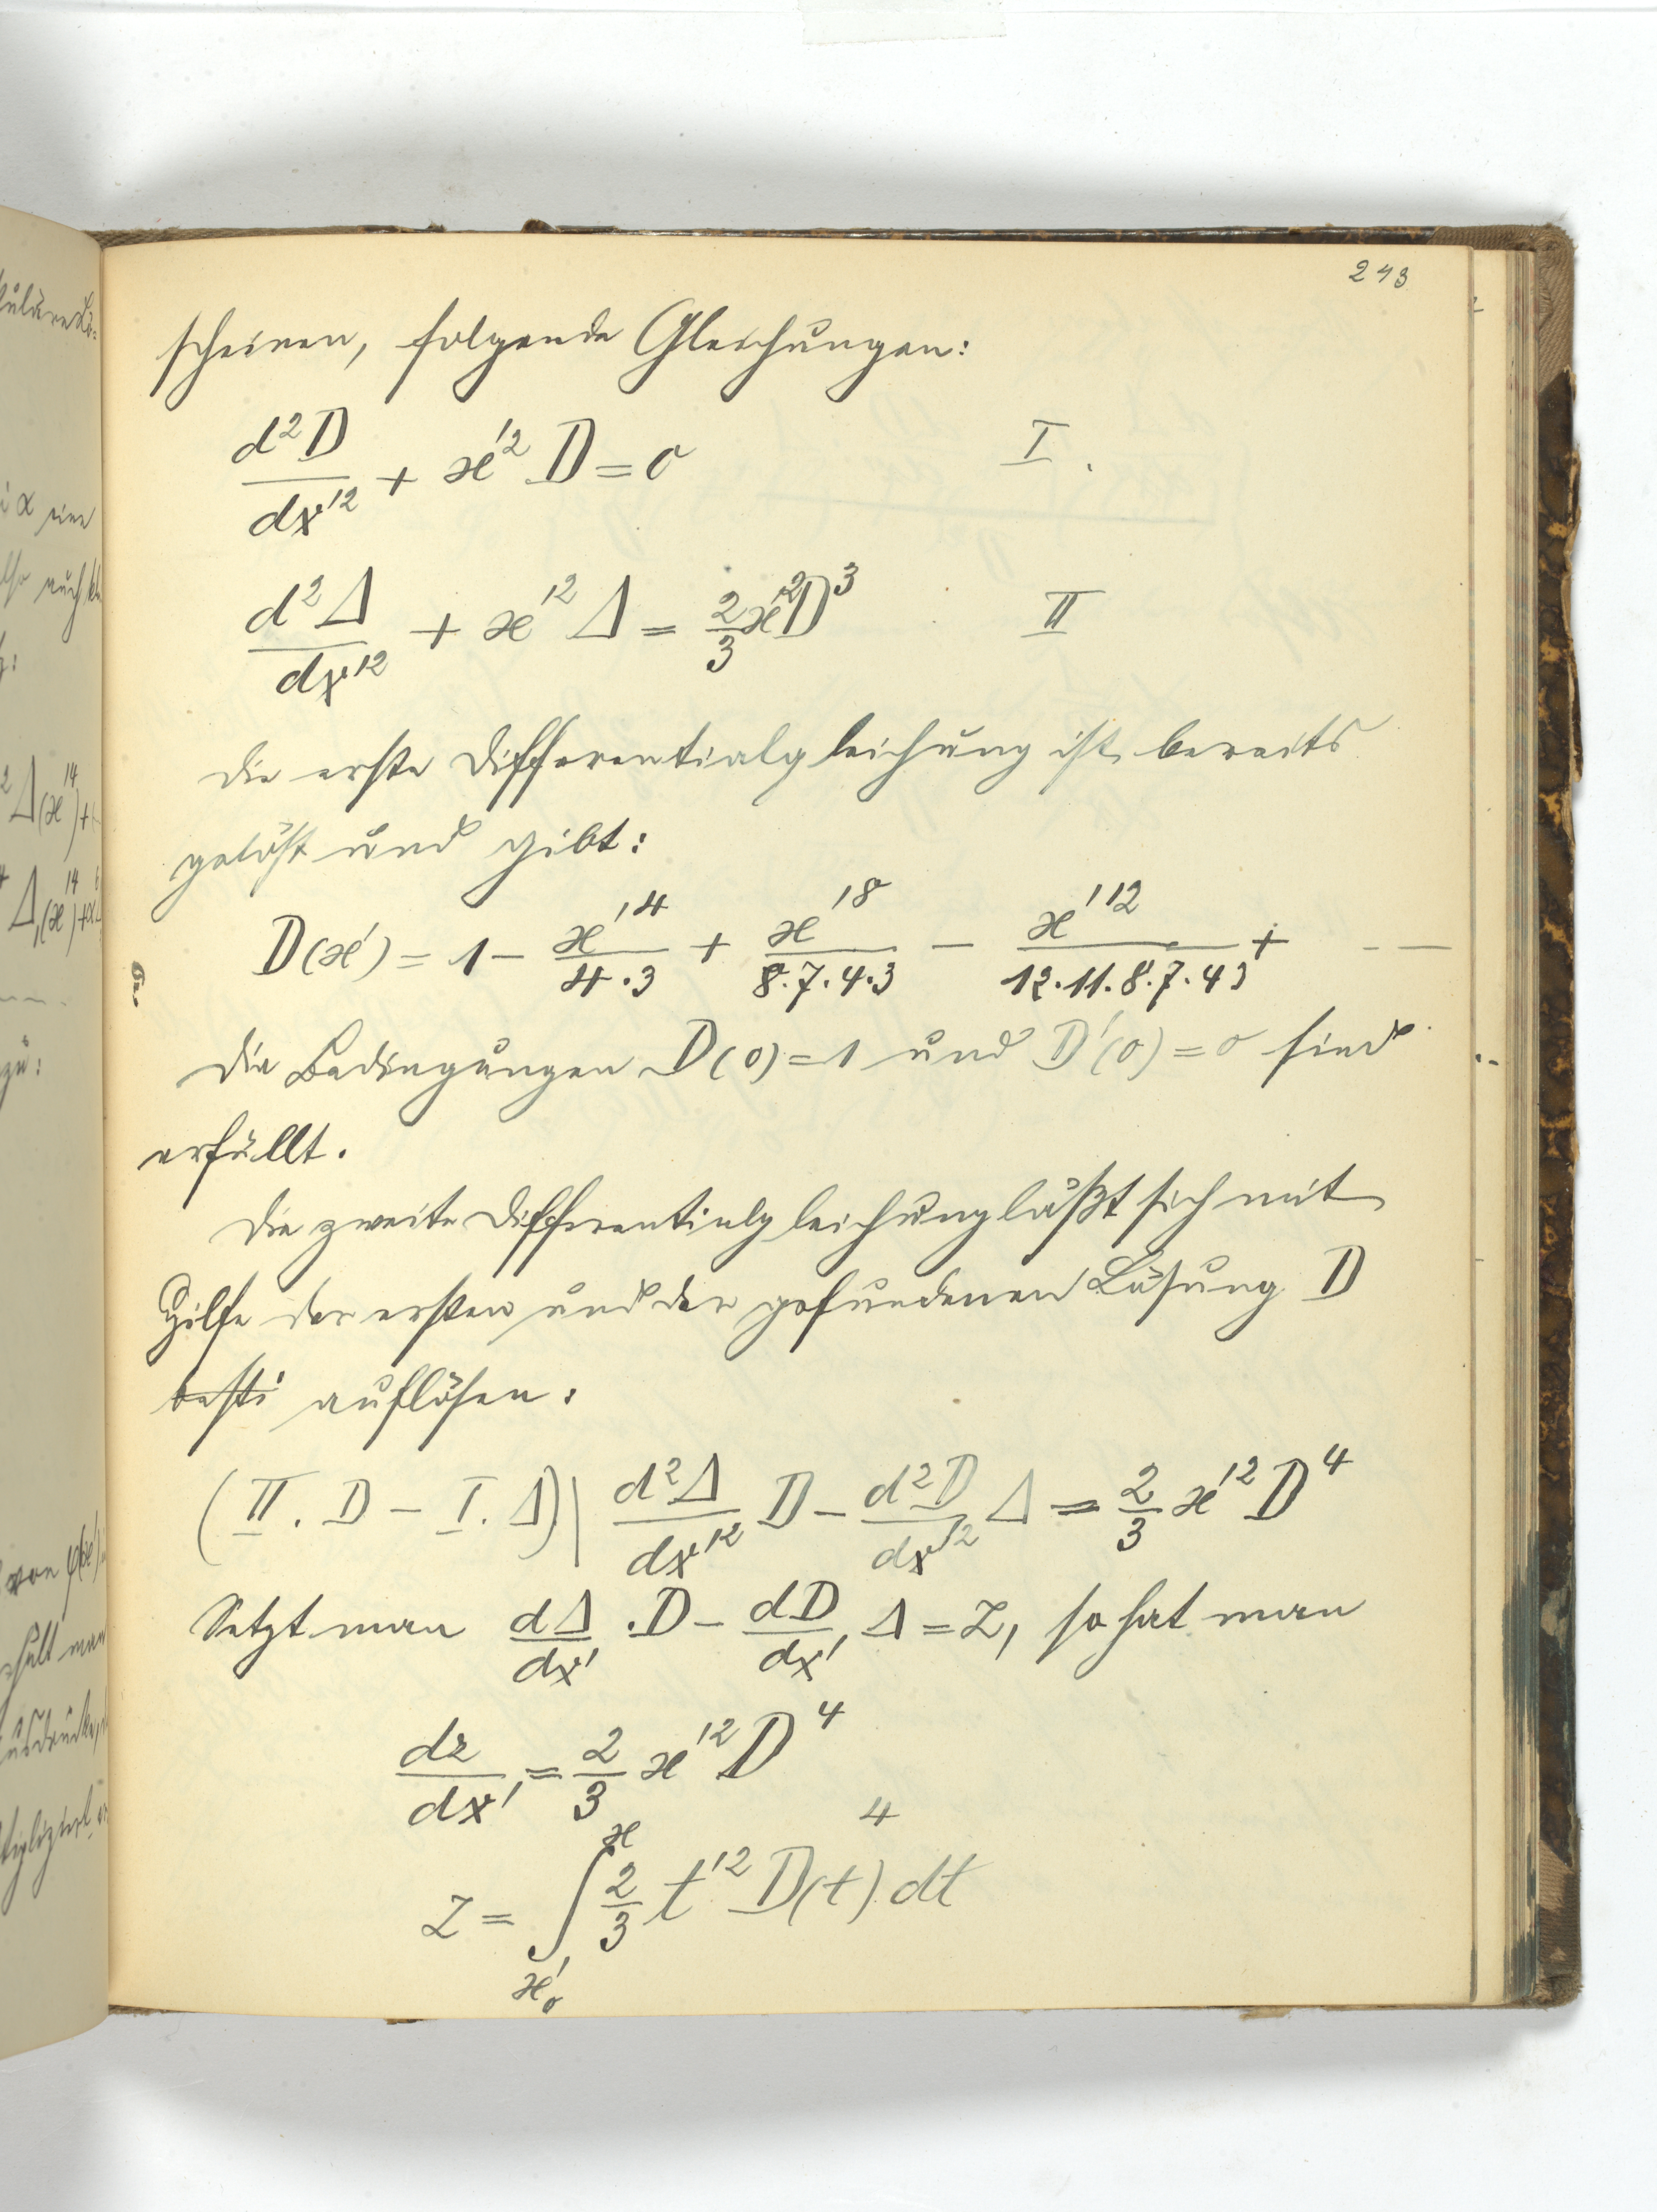 243
scheinen, folgende Gleichungen:
d²D/dx'² + x'² D = 0 I.
d²Δ/dx'² + x'² Δ = 2/3 x'² D³ II
Die erste Differentialgleichung ist bereits
gelöst und gibt:
D(x') = 1 - x'⁴/4·3 + x'⁸/8·7·4·3 - x'¹²/12·11·8·7·4 3 + - —
Die Bedingungen D(0) = 1 und D'(0) = 0 sind
erfüllt.
Die zweite Differentialgleichung läßt sich mit
Hilfe der ersten und der gefundenen Lösung D
besti auflösen:
(II. D - I. Δ)| d²Δ/dx'² D - d²D/dx'² Δ = 2/3 x'² D⁴
Setzt man dΔ/dx' . D - dD/dx' Δ = Z, so hat man
dz/dx' = 2/3 x'² D⁴
Z = ∫ₓ'₀ˣ 2/3 t'² D(t)⁴ dt